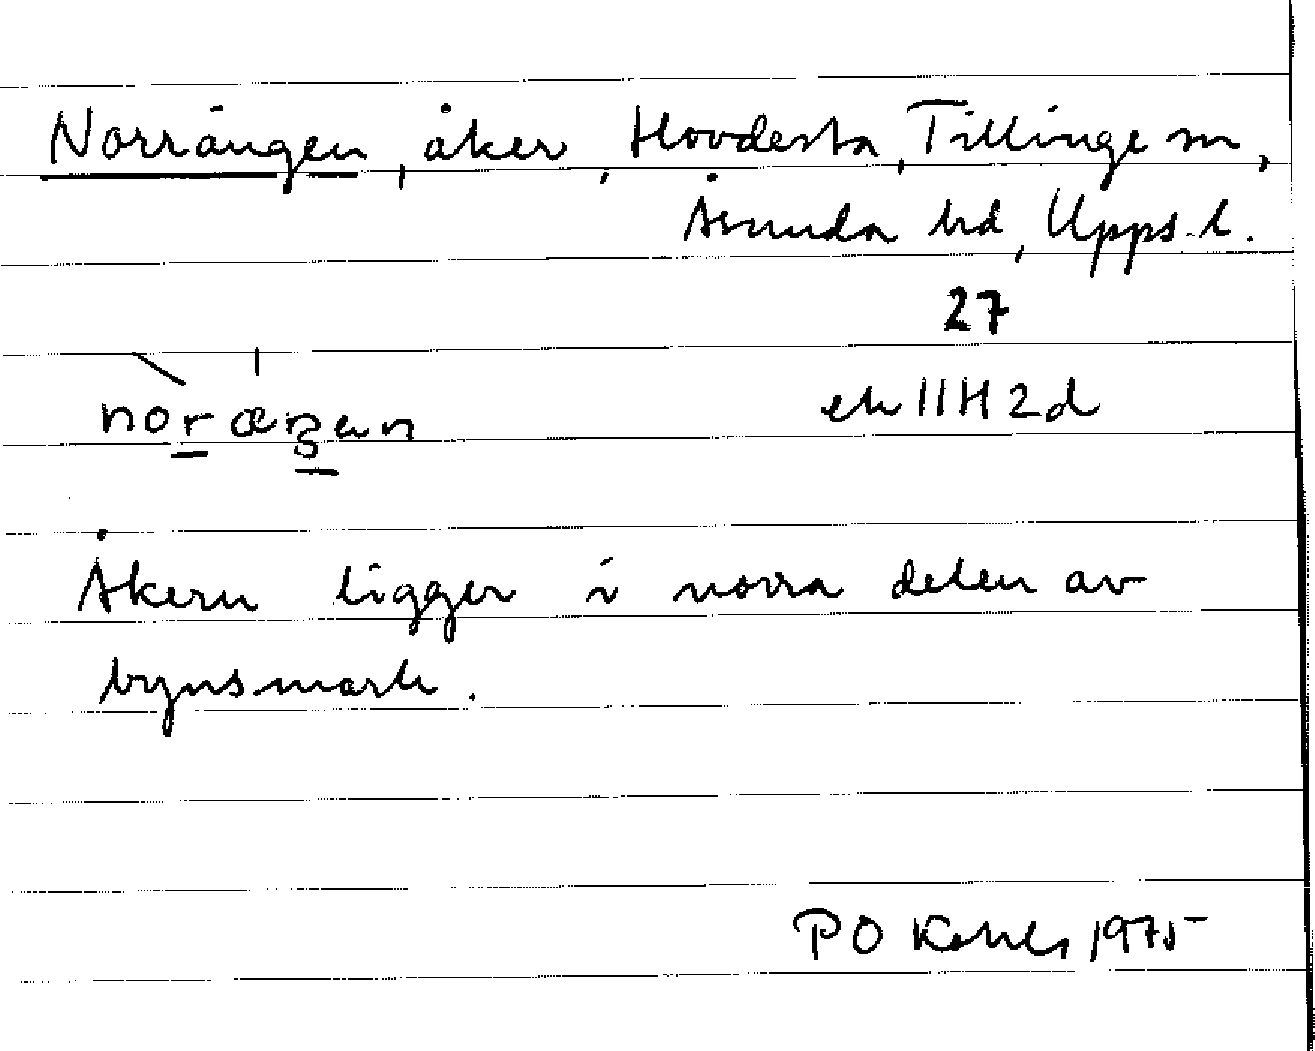 Norrängen, åker, Hovdesta, Tillinge sn,
Åsunda hd, Upps. l.
27
ek 11H2d
Åkern ligger i norra delen av
bynsmark.
P O 1975